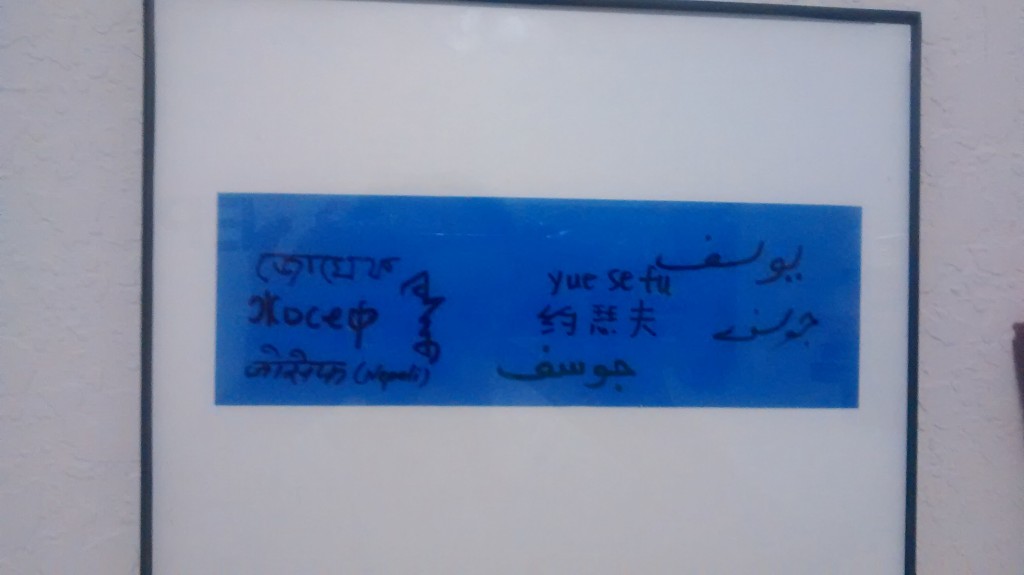 জোসেফ
Жосеф
जोसेफ (Nepali)
yue se fu
约瑟夫
جوسف
يوسف
جوسف